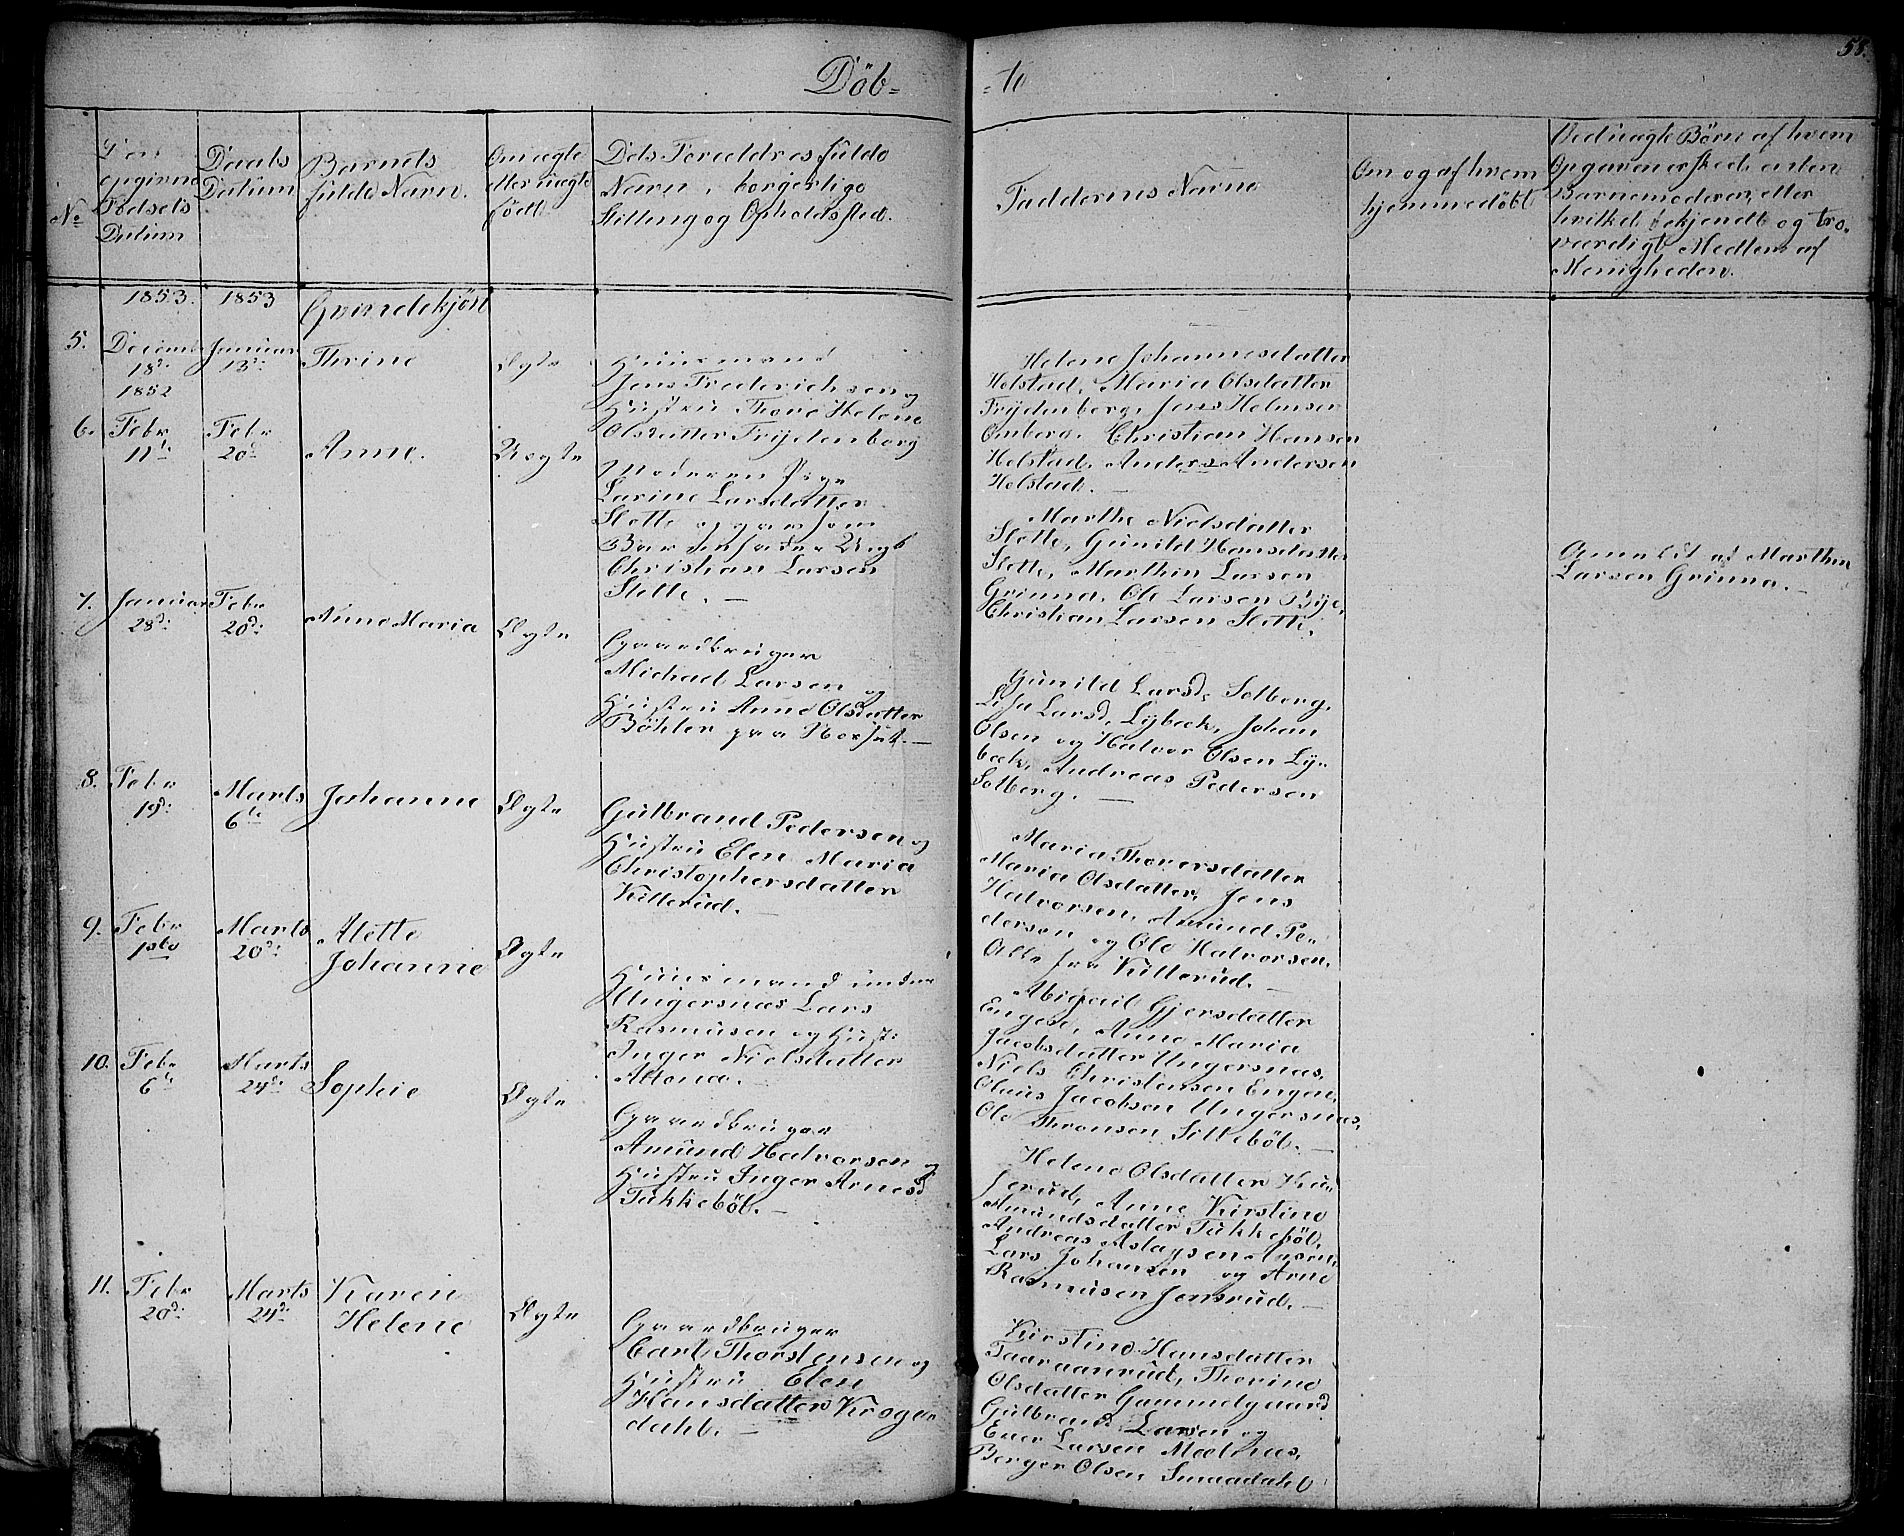 Döb-
-te
58.
No
Den opgivne Fødsels Datum
Daabs Datum
Barnets fulde Navn.
Om ægte eller uægte født
Dets Forældres fulde
Navn, borgerlige
Stilling og Opholdssted.
Faddernes Navne
Om og af hvem
hjemmedøbt
Ved uægte Børn af hvem
Opgaven er skeet, enten
Barnemoderen, eller
hvilket bekjendt og tro-
værdigt Medlem af
Menigheden.
1853. 1853 Qvindekjön
5. Decemb 18de 1852
Januar 13de
Thrine
Ægte
Huusmand
Jens Frederichsen og
Hustru Thore Helene
Olsdatter Frydenberg
Helene Johannesdatter
Helstad, Maria Olsdatter
Frydenberg, Jens Helmsen
Omberg. Christian Hansen
Helstad, Anders Andersen
Helstad. —
6. Febr 11te
Febr 20de
Anne.
Uægte
Moderen Pige
Larine Larsdatter
Slette og som
Barnefader Ungk
Christian Larsen
Slette. —
Marthe Nielsdatter
Slette, Gunild Hansdatter
Slette, Marthin Larsen
Grinna, Ole Larsen Bye,
Christian Larsen Slette.
Anmeldt af Marthin
Larsen Grinna. —
7. Januar 28de
Febr 20de
Anne Maria
Ægte
Gaardbruger
Michael Larsen og
Hustru Anne Olsdatter
Böhler paa —
Gunild Larsd, Solberg,
Lisa Larsd, Lybeck, Johan
Olsen og Halvor Olsen Ly-
beck, Andreas Pedersen
Solberg. —
8. Febr 19de
Marts 6te
Johanne
Ægte
Gulbrand Pedersen og
Hustru Elen Maria
Christophersdatter
Killerud. —
Maria Thorersdatter
Maria Olsdatter, Jens
Halvorsen, Amund Pe-
dersen og Ole Halvorsen,
Alle fra Killerud. —
9. Febr 1ste
Marts 20de
Alette
Johanne
Ægte
Huusmand under
Ungersnæs Lars
Rasmusen og Hust:
Inger Nielsdatter
Altona. —
Abigail Gjersdatter
Engen, Anne Maria
Jacobsdatter Ungersnæs,
Niels Christensen Engen,
Olaus Jacobsen Ungersnæs,
Ole Thronsen Silkeböl. —
10. Febr 6te
Marts 24de
Sophie
Ægte
Gaardbruger
Amund Halvorsen og
Hustru Inger Arnesd
Tukkeböl. —
Helene Olsdatter Hun-
serud, Anne Kirstine
Amundsdatter Tukkeböl,
Andreas Aslagsen Aasen,
Lars Johansen og Arne
Rasmusen Jonsrud. —
11. Febr 20de
Marts 24de
Karen
Helene
Ægte
Gaardbruger
Carl Thorstensen og
Hustru Elen
Hansdatter Kroger-
dahl. —
Kirstine Hansdatter
Taaraanrud, Thorine
Olsdatter Gammelgaard
Gulbrand Larsen og
Ener Larsen Mælnæs,
Berger Olsen Smaadahl